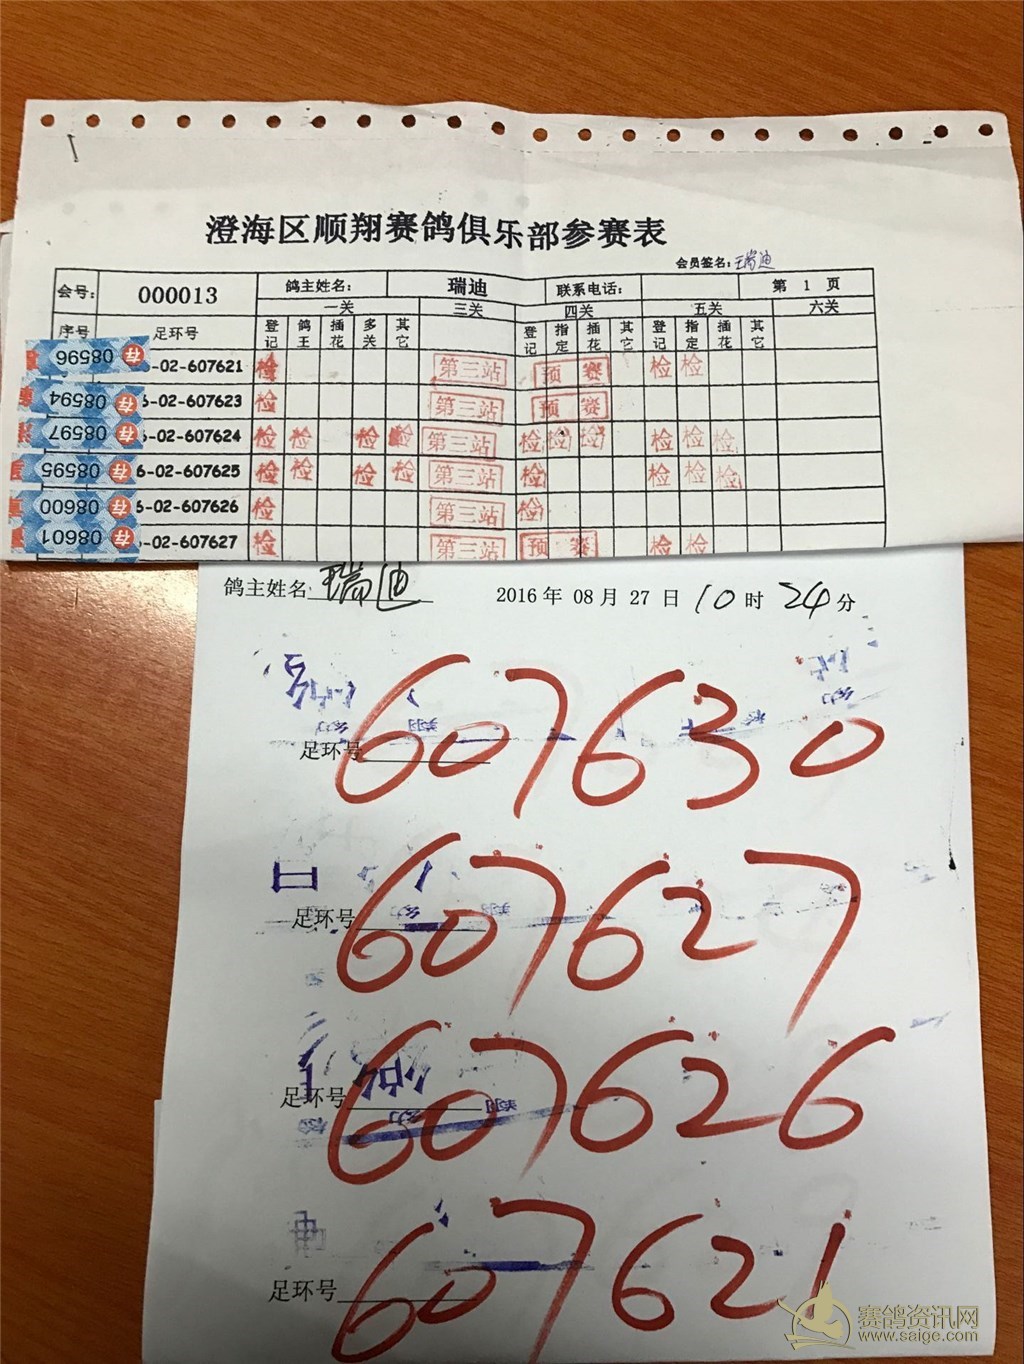 澄海区顺翔赛鸽俱乐部参赛表
会员签名: 瑞迪
会号: 000013 鸽主姓名: 瑞迪 联系电话: 第 1 页
一关 三关 四关 五关 六关
序号 足环号 登记 鸽王 插花 多关 其它 登记 指定 插花 其它 登记 指定 插花 其它
08596 存 -02-607621 检 第三站 预赛 检 检
08594 存 -02-607623 检 第三站 预赛
08597 存 -02-607624 检 检 检 检 第三站 检 检 检 检 检 检
08595 存 6-02-607625 检 检 检 检 第三站 检 检 检 检
08600 存 6-02-607626 检 第三站 检
08601 存 -02-607627 检 第三站 预赛 检 检
鸽主姓名 瑞迪 2016 年 08 月 27 日 10 时 24 分
足环号 607630
足环号 607627
足环号 607626
足环号 607621
赛鸽资讯网
www.saige.com